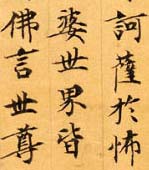 訶薩於怖
婆世界皆
佛言世尊